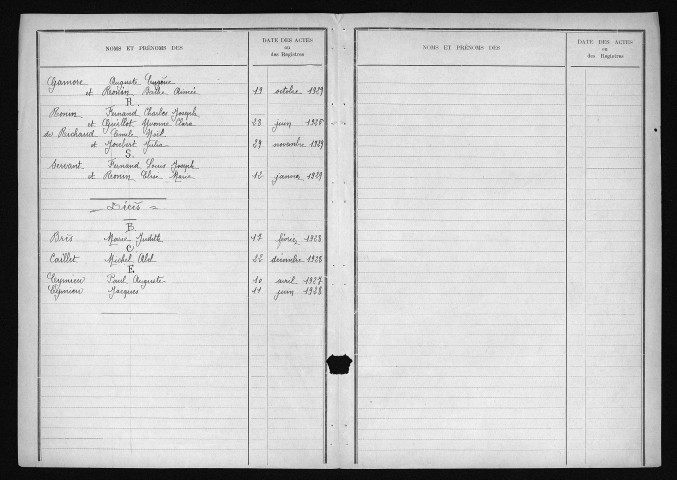 NOMS ET PRÉNOMS DES
DATE DES ACTES
ou
des Registres
Gamore Auguste Eugène
et Ronin Berthe Aimée 19 octobre 1929
R.
Ronin Fernand Charles Joseph
et Guillot Yvonne Clara 23 juin 1928
de Richaud Emile Noël
et Joubert Julia 29 novembre 1929
S.
Servant Fernand Louis Joseph
et Ronin Elise Marie 12 janvier 1929
Décès
B.
Bris Marie Judith 17 février 1928
C
Caillet Michel Abel 22 décembre 1928
E.
Eymieu Paul Auguste 10 avril 1927
Eymieu Jacques 11 juin 1928
NOMS ET PRÉNOMS DES
DATE DES ACTES
ou
des Registres